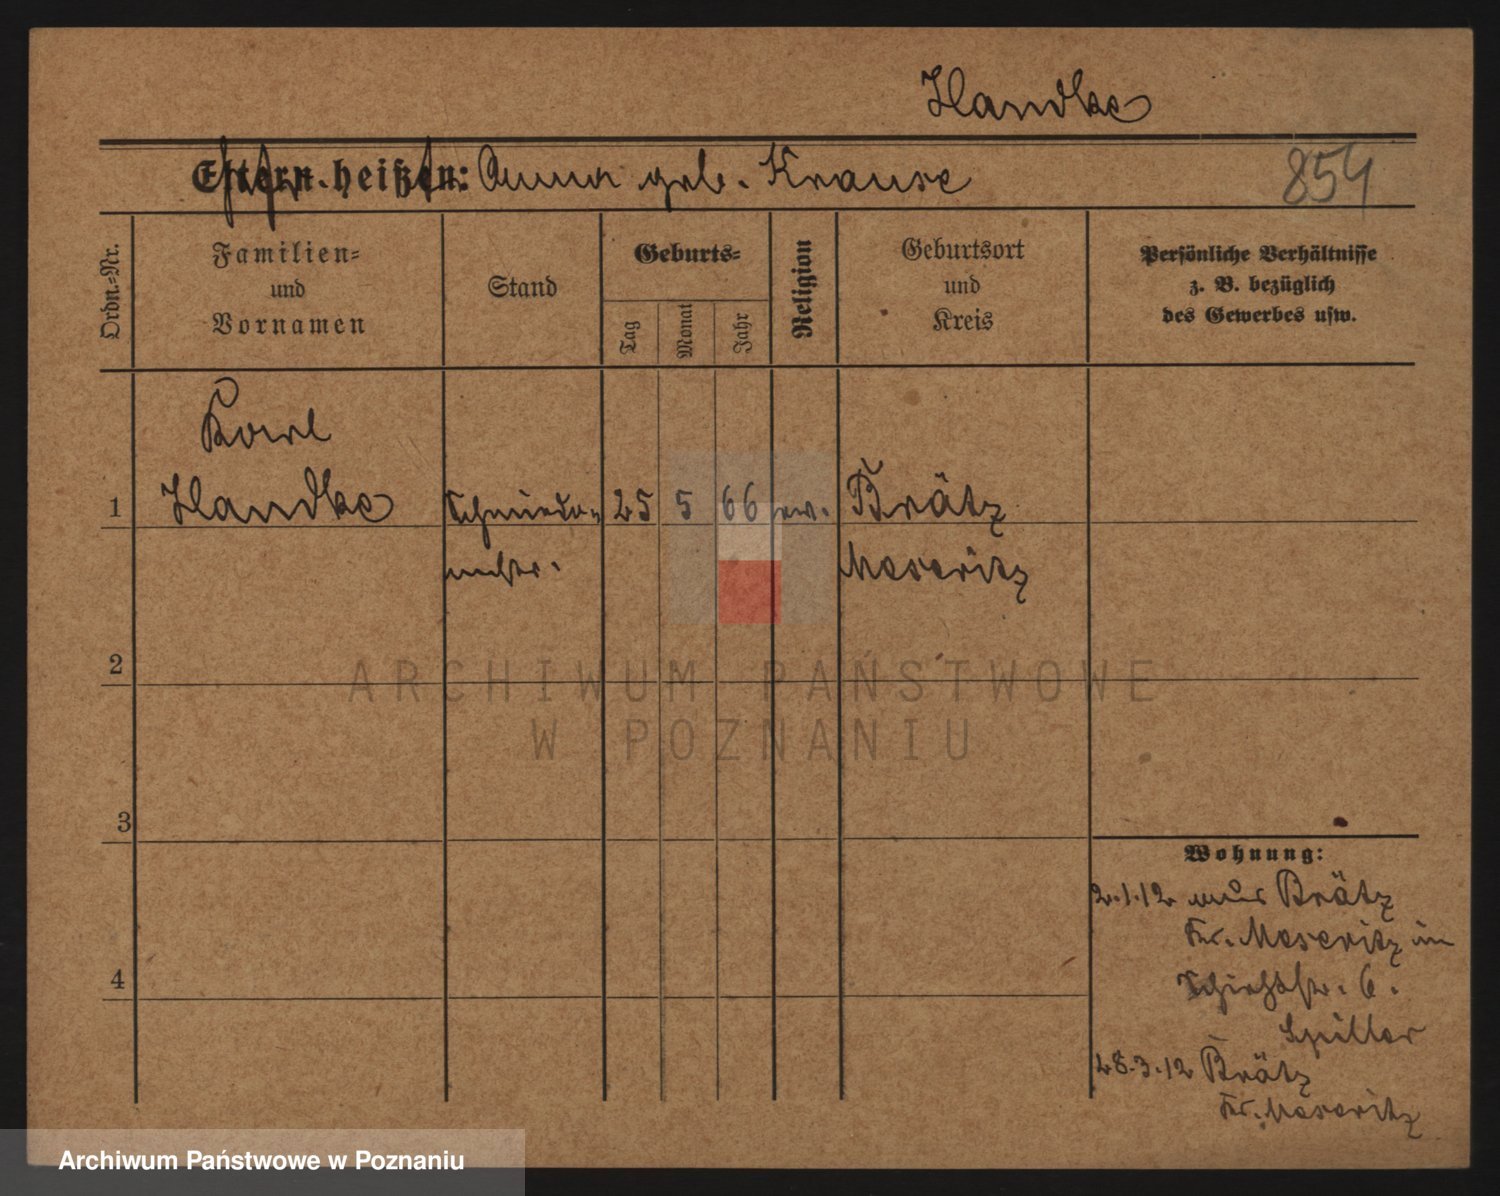 Handke
Eltern heißen: Anna geb. Krause
854
Ordn.-Nr.
Familien-
und
Vornamen
Stand
Geburts-
Tag
Monat
Jahr
Religion
Geburtsort
und
Kreis
Persönliche Verhältnisse
z. B. bezüglich
des Gewerbes usw.
Karl
1 Handke Schmiede- 25 5 66 ev. Brätz
mstr. Meseritz
2
ARCHIWUM PAŃSTWOWE
W POZNANIU
3
4
Wohnung:
2.1.12 aus Brätz
Kr. Meseritz in
6.
Spiller
28.3.12 Brätz
Kr. Meseritz
Archiwum Państwowe w Poznaniu